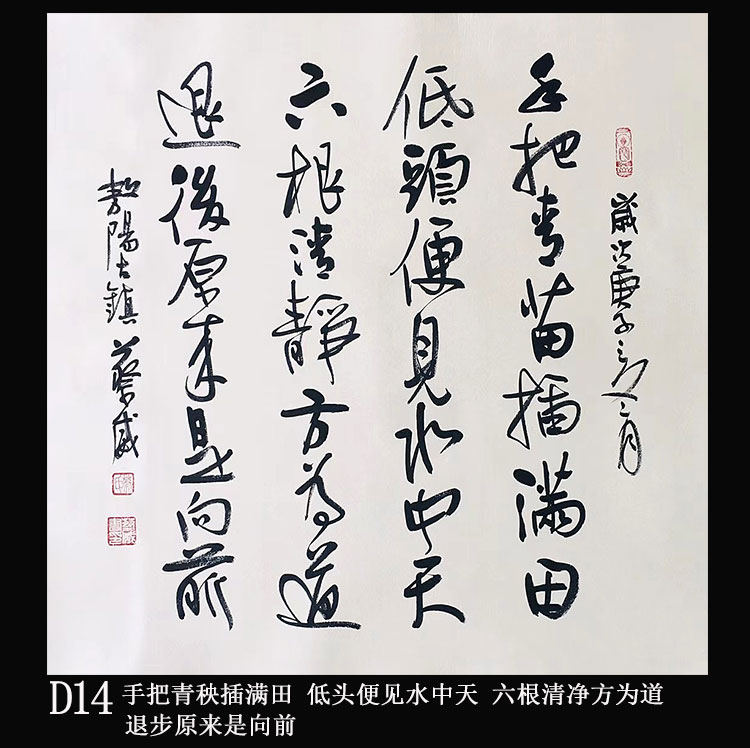 歲次庚子之月
手把青苗插滿田
低頭便見水中天
六根清靜方為道
退後原來是向前
陽古鎮 蔡威
D14 手把青秧插满田 低头便见水中天 六根清净方为道
退步原来是向前